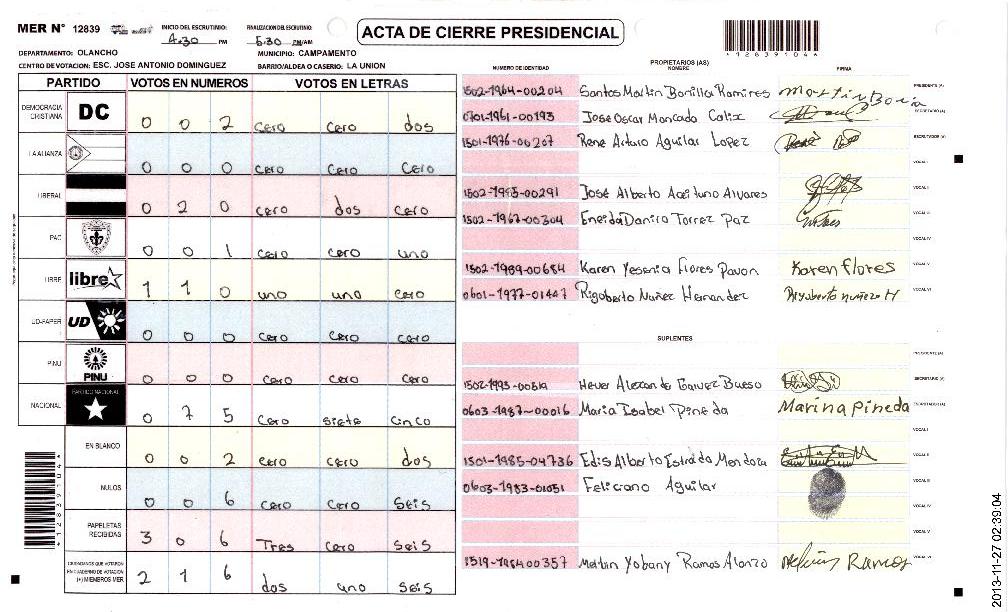 MER Nº 12839
INICIO DEL ESCRUTINIO:
4:30 PM
FINALIZACION DEL ESCRUTINIO:
5:30 PM/AM
ACTA DE CIERRE PRESIDENCIAL
*12839104*
DEPARTAMENTO: OLANCHO
MUNICIPIO: CAMPAMENTO
CENTRO DE VOTACION: ESC. JOSE ANTONIO DOMINGUEZ
BARRIO/ALDEA O CASERIO: LA UNION
PARTIDO VOTOS EN NUMEROS VOTOS EN LETRAS
DEMOCRACIA CRISTIANA DC 0 0 2 cero cero dos
LA ALIANZA 0 0 0 cero cero cero
LIBERAL 0 2 0 cero dos cero
PAC 0 0 1 cero cero uno
LIBRE libre 1 1 0 uno uno cero
UD-FAPER UD 0 0 0 cero cero cero
PINU PINU 0 0 0 cero cero cero
NACIONAL PARTIDO NACIONAL 0 7 5 cero siete cinco
EN BLANCO 0 0 2 cero cero dos
NULOS 0 0 6 cero cero seis
PAPELETAS RECIBIDAS 3 0 6 Tres cero seis
CIUDADANOS QUE VOTARON EN CUADERNO DE VOTACION (+) MIEMBROS MER 2 1 6 dos uno seis
*12839104*
PROPIETARIOS (AS)
NUMERO DE IDENTIDAD NOMBRE FIRMA
1502-1964-00204 Santos Martin Bonilla Ramires PRESIDENTE (A)
0701-1961-00193 Jose Oscar Moncado Calix SECRETARIO (A)
1501-1976-00207 Rene Arturo Aguilar Lopez ESCRUTADOR (A)
VOCAL I
1502-1985-00291 José Alberto Aceituno Alvares VOCAL II
1502-1967-00304 Eneida Danira Torrez Paz VOCAL III
VOCAL IV
1502-1989-00684 Karen Yesenia Flores Pavon Karen flores VOCAL V
0601-1977-01447 Rigoberto Nuñez Hernandez Rigoberto nuñez H VOCAL VI
SUPLENTES
PRESIDENTE (A)
Hever SECRETARIO (A)
0603-1987-00016 Maria Isabel Pineda Marina Pineda ESCRUTADOR (A)
VOCAL I
1501-1985-04736 Edis Alberto Estrada Mendoza VOCAL II
0603-1983-01051 Feliciano Aguilar VOCAL III
VOCAL IV
VOCAL V
1519-1984-00357 Yobany Ramos Alonzo Ramos VOCAL VI
2013-11-27 02:39:04